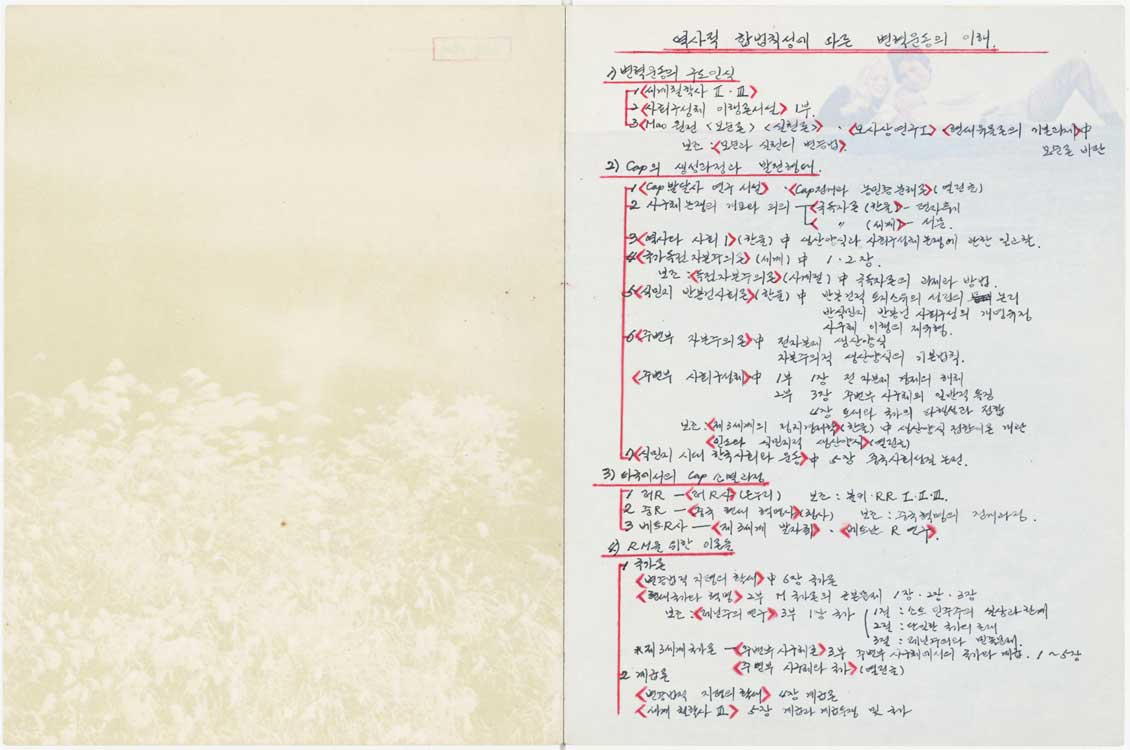 역사적 합법칙성에 따른 변혁운동의 이해.
1) 변혁운동의 구도인식
1 <세계철학사 Ⅱ·Ⅲ>
2 <사회구성체 이행론서설> 1부.
3 <Mao 원전 <모순론> <실천론>> · <모사상연구Ⅰ> <현대유물론의 기본과제>中
보조 : <모순과 실천의 변증법> 모순론 비판
2) Cap의 생성과정과 발전형태.
1 <Cap발달사 연구 서설> · <Cap전개와 농민층분해론>(열린글)
2 사구체논쟁의 개요와 의의 <국독자론 (한울)> - 편자후기
< 〃 (세계)> - 서문.
3 <역사와 사회 1> (한울) 中 생산양식과 사회구성체논쟁에 관한 일고찰.
4 <국가독점자본주의론> (세계) 中 1·2장.
보조 : <독점자본주의론> (사계절) 中 국독자론의 과제와 방법.
5 <식민지 반봉건사회론> (한울) 中 반봉건적 토지소유의 성격의 논리
반식민지 반봉건 사회구성의 개념규정
사구체 이행의 제유형.
6 <주변부 자본주의론> 中 전자본제 생산양식
자본주의적 생산양식의 기본법칙.
<주변부 사회구성체> 中 1부 1장 전자본제 경제의 해체
2부 3장 주변부 사구체의 일반적 특징
4장 토지와 국가의 접합
보조 : <제3세계의 정치경제학> (한울) 中 생산양식 접합이론 개관
<인도와 식민지적 생산양식> (열린글)
7 <식민지 시대 한국사회와 운동> 中 5장 중국사회성질 논전.
3) 타국에서의 Cap 소멸과정
1 러R — <러R사> (온누리) 보조 : 볼키·RR Ⅰ.Ⅱ.Ⅲ.
2 중R — <중국 현대 혁명사> 보조 : 중국혁명의 전개과정.
3 베트R사 — <제3세계 발자취> · <베트남 R 연구>.
4) RM을 위한 이론들
1 국가론
<변증법적 지평의 확대> 中 6장 국가론
<현대국가와 혁명> 2부 M 국가론의 근본문제 1장·2장·3장
보조 : <레닌주의 연구> 3부 1장 국가 1절 : 소도 민주주의 실상과 한계
2절 : 단일한 국가의 문제
3절 : 레닌주의와 민족문제.
*제3세계국가론 — <주변부사구체론> 3부 주변부 사구체에서의 국가와 계급. 1~5장
<주변부 사구체와 국가> (열린글)
2 계급론
<변증법적 지평의 확대> 4장 계급론
<세계 철학사 Ⅲ> 5장 계급과 계급투쟁 및 국가